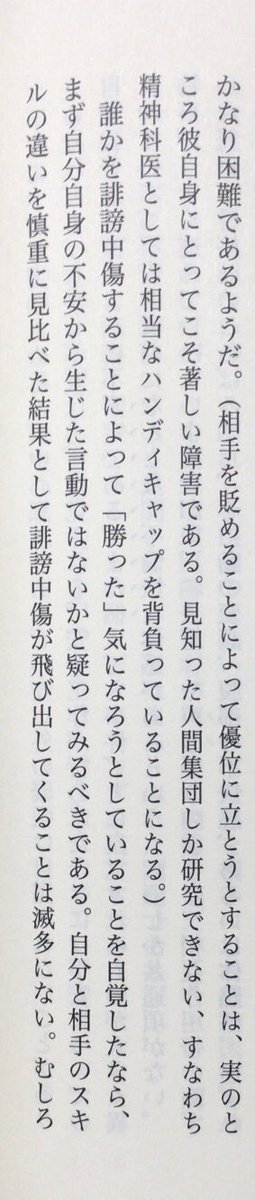 かなり困難であるようだ。（相手を貶めることによって優位に立とうとすることは、実のと
ころ彼自身にとってこそ著しい障害である。見知った人間集団しか研究できない、すなわち
精神科医としては相当なハンディキャップを背負っていることになる。）
誰かを誹謗中傷することによって「勝った」気になろうとしていることを自覚したなら、
まず自分自身の不安から生じた言動ではないかと疑ってみるべきである。自分と相手のスキ
ルの違いを慎重に見比べた結果として誹謗中傷が飛び出してくることは滅多にない。むしろ